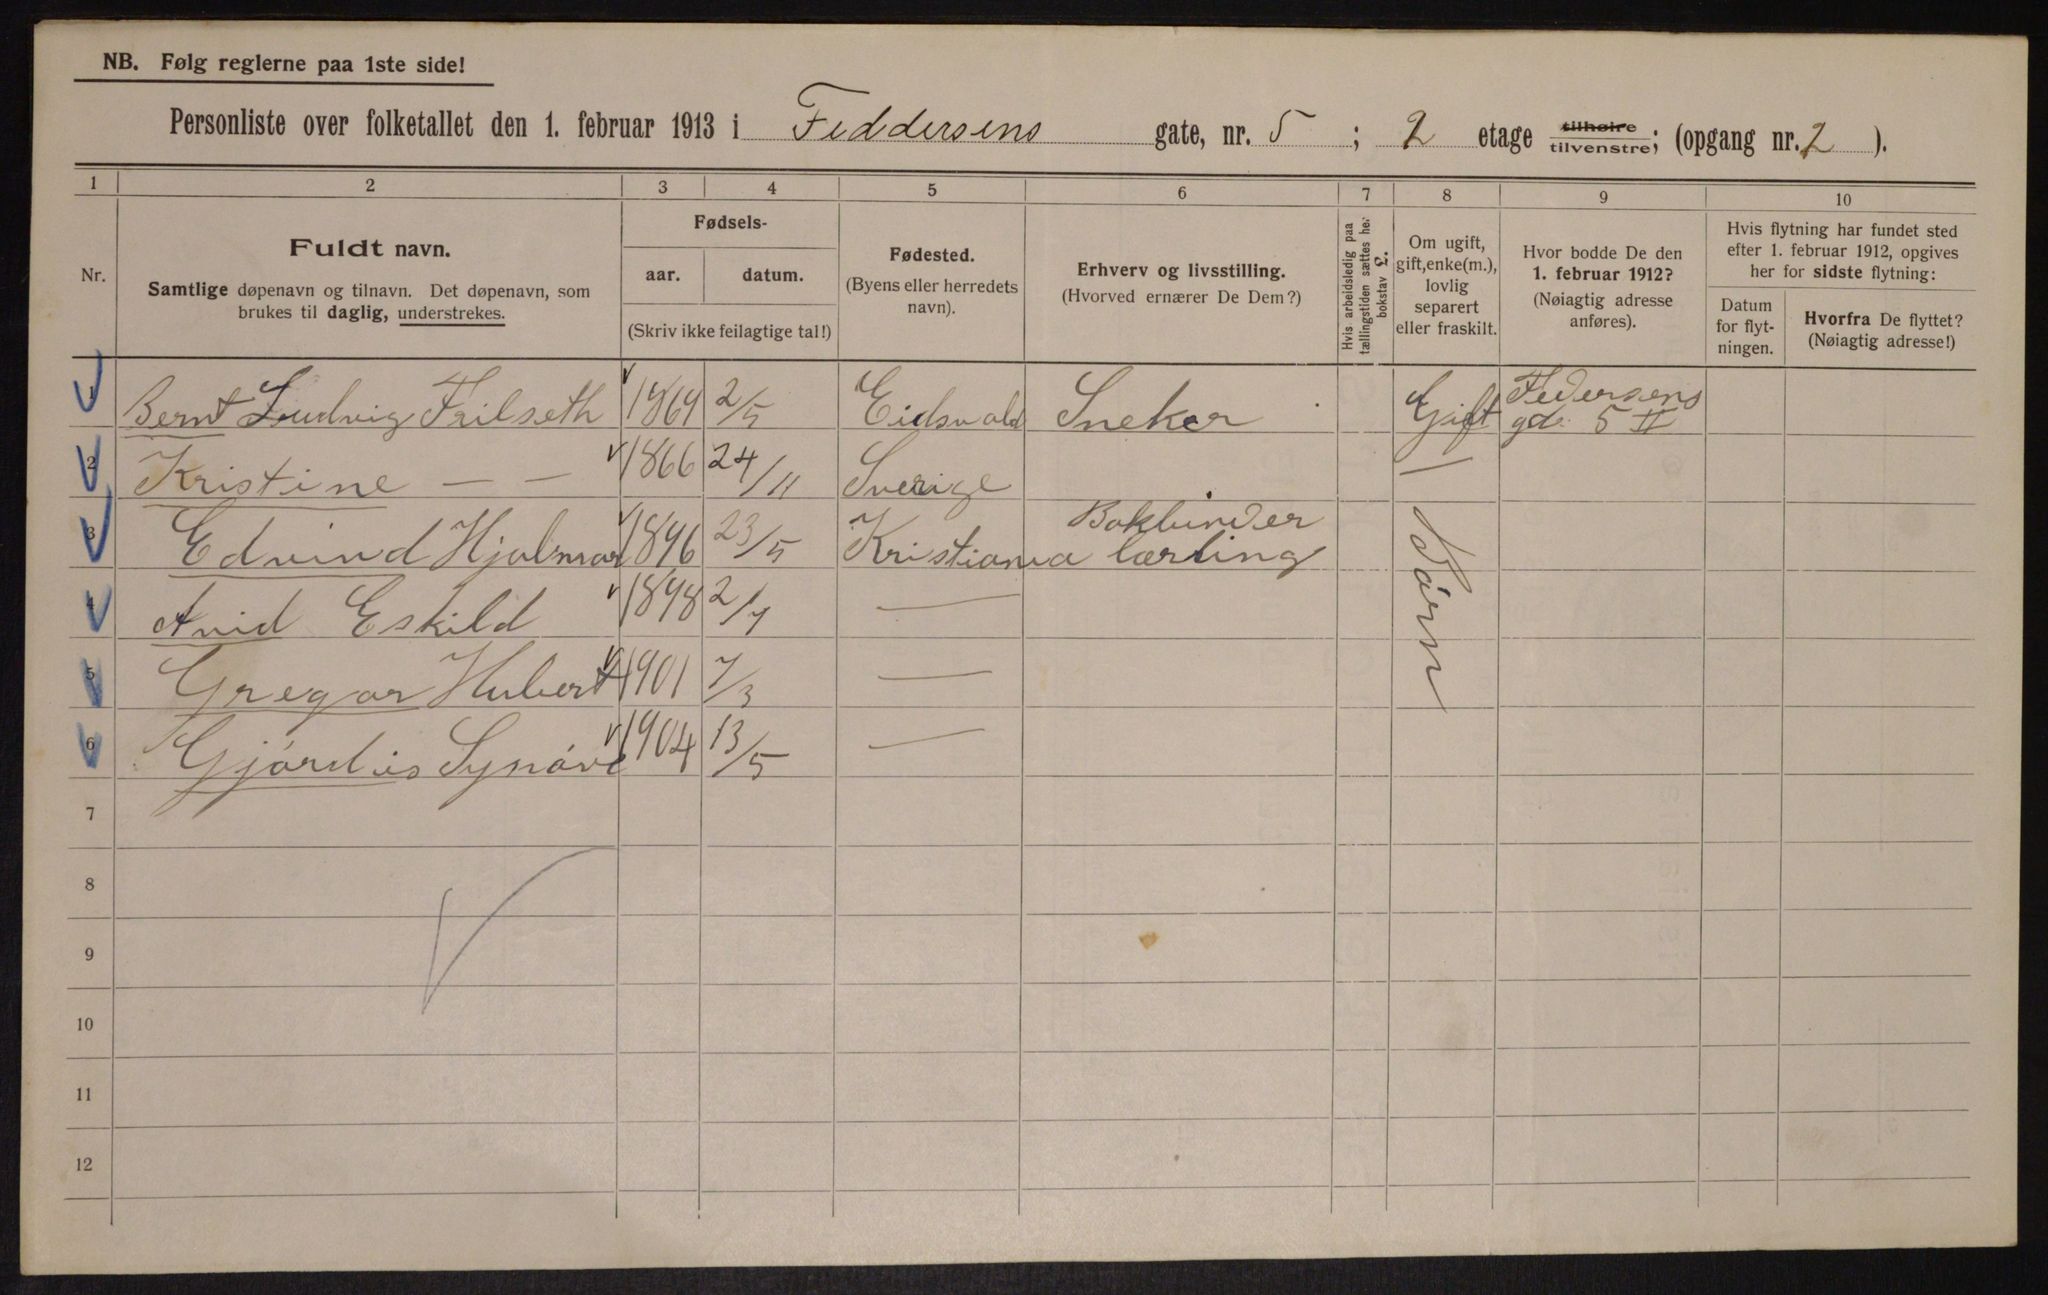 NB. Følg reglerne paa 1ste side!
Personliste over folketallet den 1. februar 1913 i Feddersens gate, nr. 5 ; 2 etage tilhøire tilvenstre; (opgang nr. 2 ).
1 2 3 4 5 6 7 8 9 10
Nr.
Fuldt navn.
Samtlige døpenavn og tilnavn. Det døpenavn, som
brukes til daglig, understrekes.
Fødsels-
aar. datum.
(Skriv ikke feilagtige tal!)
Fødested.
(Byens eller herredets
navn).
Erhverv og livsstilling.
(Hvorved ernærer De Dem?)
Hvis arbeidsledig paa
tællingstiden sættes her
bokstav L.
Om ugift,
gift, enke(m.),
lovlig
separert
eller fraskilt.
Hvor bodde De den
1. februar 1912?
(Nøiagtig adresse
anføres).
Hvis flytning har fundet sted
efter 1. februar 1912, opgives
her for sidste flytning:
Datum
for flyt-
ningen.
Hvorfra De flyttet?
(Nøiagtig adresse!)
1 Bernt Ludvig Frilseth 1869 2/5 Eidsvold Sneker Gift Federsens
gd. 5 II
2 Kristine — — 1866 24/11 Sverige
3 Edvind Hjalmar 1896 23/5 Kristiania Bokbinder
lærling
Börn
4 Avid Eskild 1898 2/7 —
5 Gregar Hubert 1901 7/3 —
6 Gjördis Synöve 1904 13/5 —
7
8
9
10
11
12